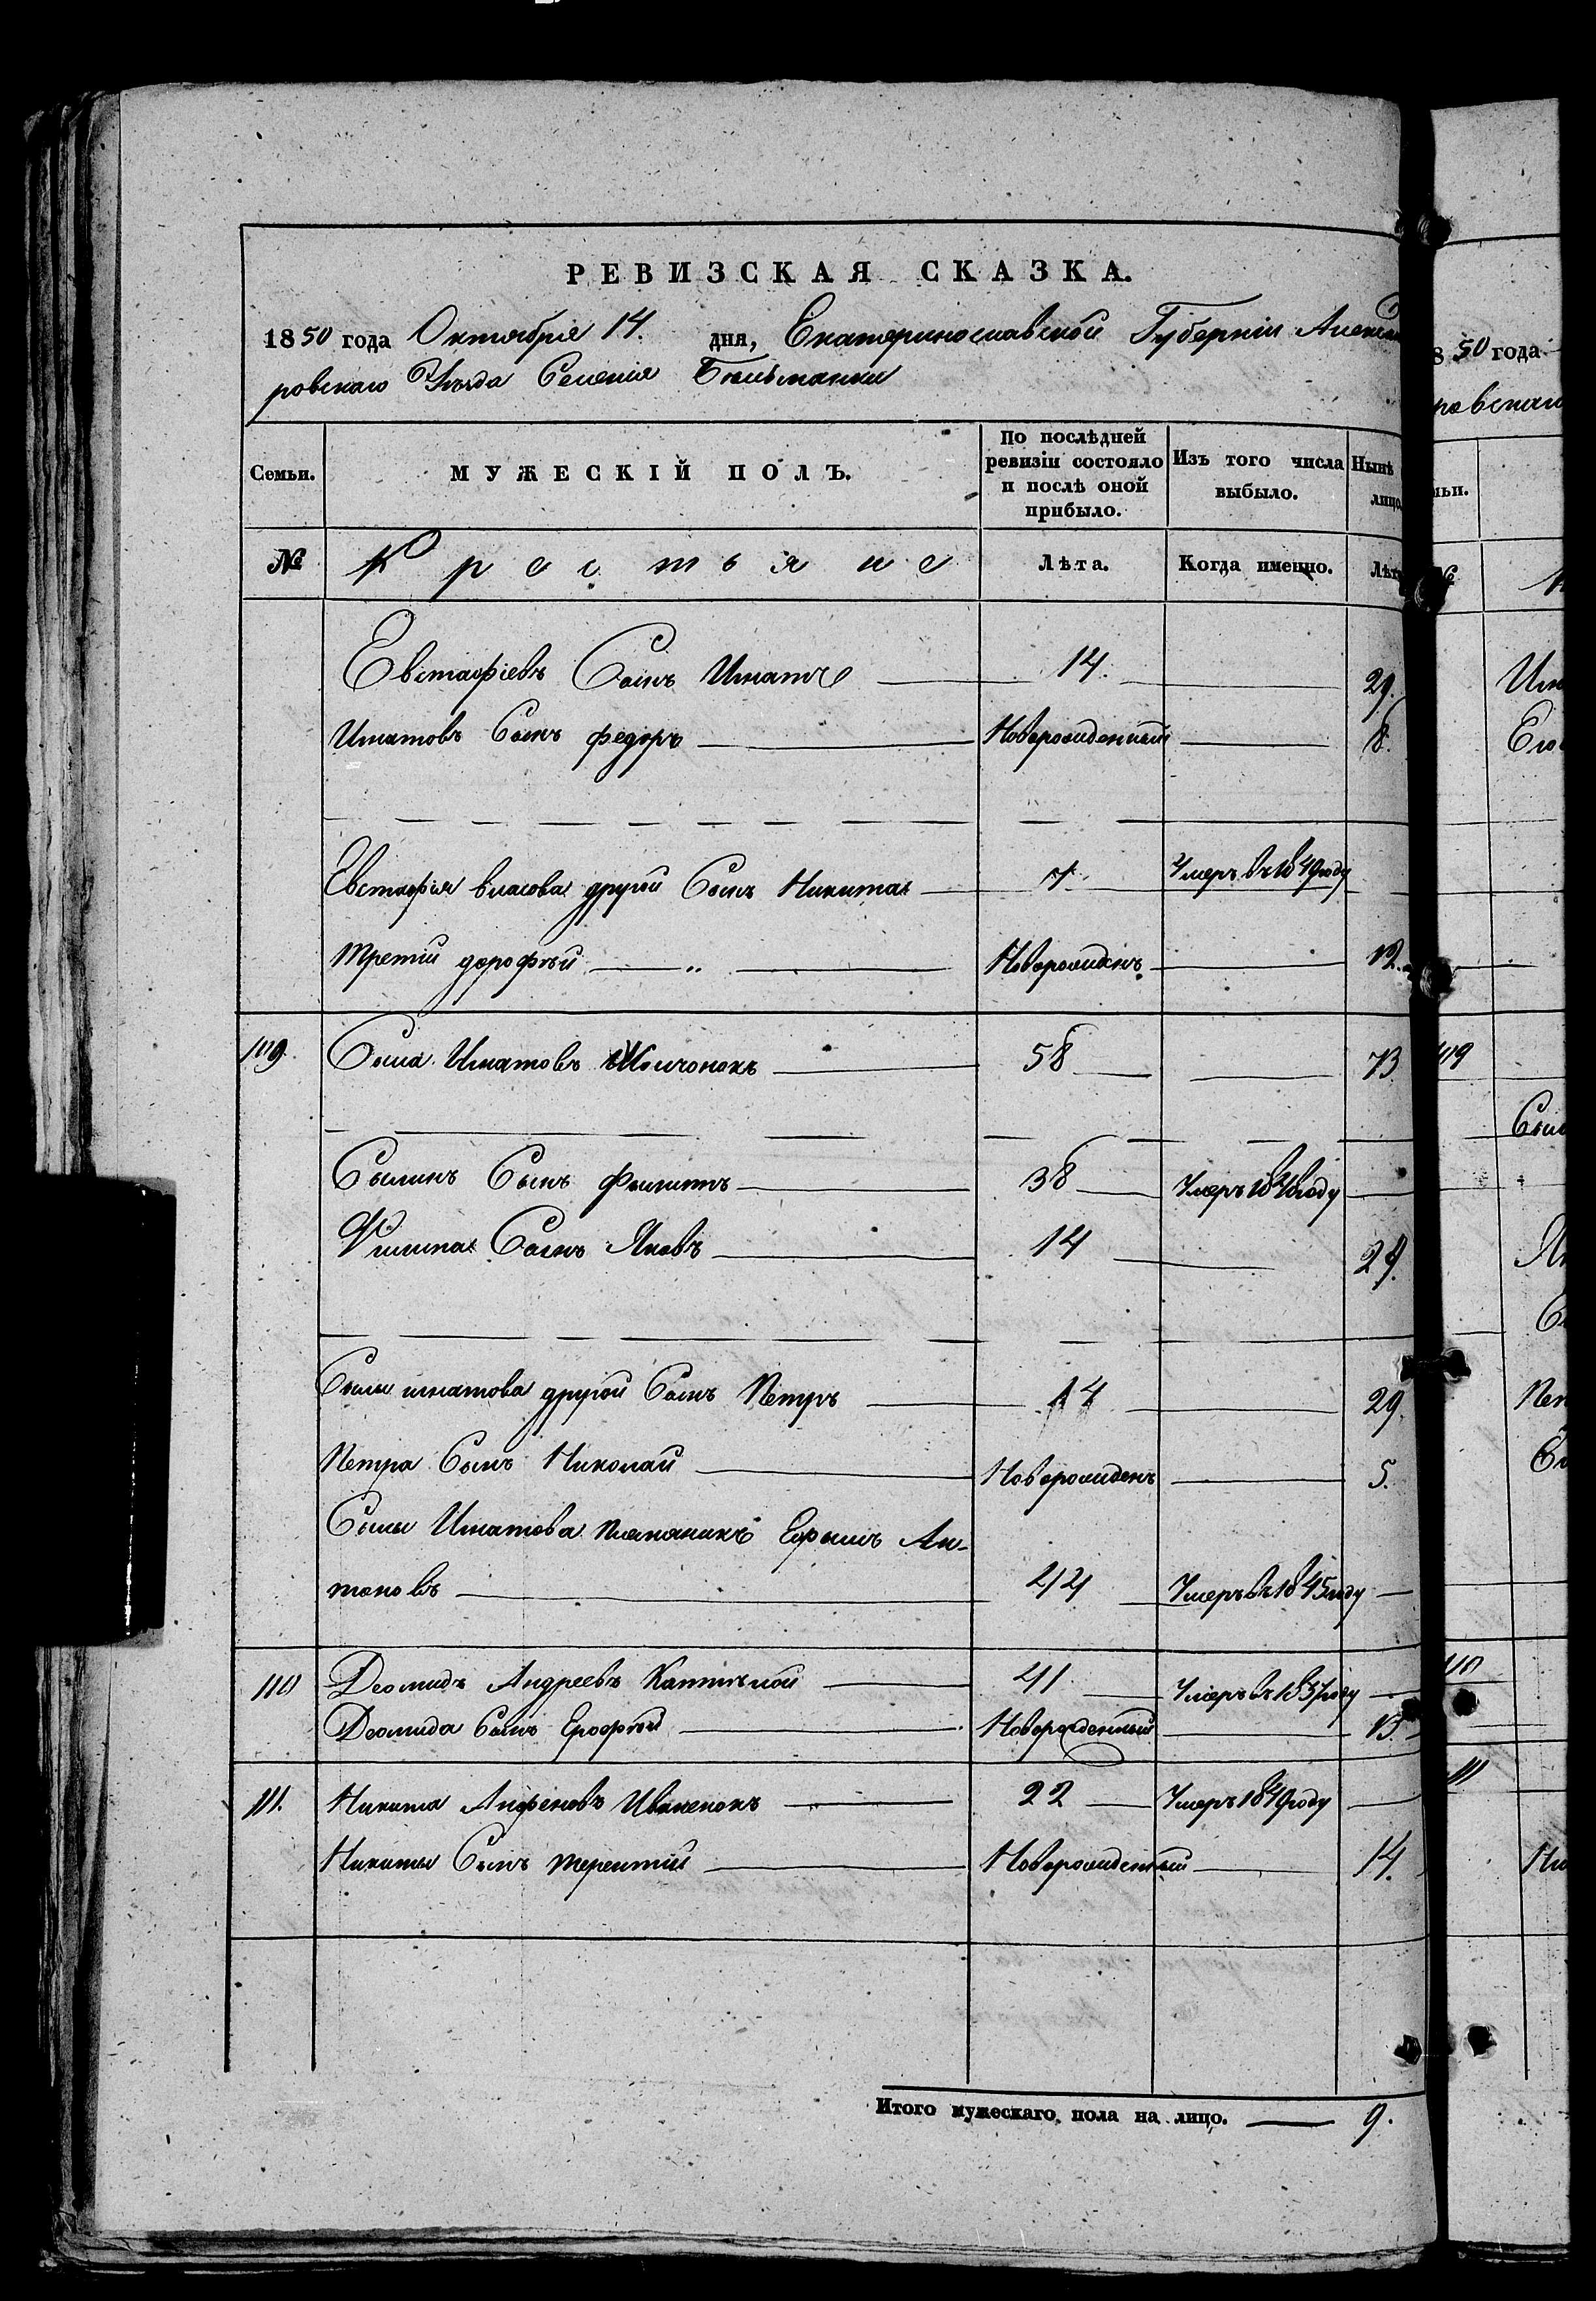 РЕВИЗСКАЯ СКАЗКА.
1850 года Октября 14. дня, Екатеринославской Губерніи Александ
ровскаго Уѣзда Селенія Бѣльманки
Семьи. МУЖЕСКІЙ ПОЛЪ. По послѣдней ревизіи состояло и послѣ оной прибыло. Изъ того числа выбыло. Нынѣ лицо
№ Крестьяне Лѣта. Когда именно. Лѣт
Евстафіевъ Сынъ Игнатъ 14. 29.
Игнатовъ Сынъ федоръ Новорожденный 8.
Евстафія власова другой Сынъ Никита 7 Умеръ въ 1849 году
Третій дорофѣй „ Новорожденъ 12.
109. Сыла Игнатовъ 58 73.
Сылинъ Сынъ Филиппъ 38 Умеръ 1840 году
Филипа Сынъ Яковъ 14 29.
Сылы игнатова другой Сынъ Петръ 14 29.
Петра Сынъ Николай Новорожденъ 5.
Сылы Игнатова племяникъ Ефимъ Ан-
тоновъ 24 Умеръ въ 1845 году
110 Деомидъ Андреевъ Умеръ въ 1837 году
41
Деомида Сынъ Ерофѣй Новорожденный 13.
111. Никита Анфеновъ Ивченокъ 22 Умеръ 1849 году
Никиты Сынъ терентій Новорожденный 14.
Итого мужескаго пола на лицо. 9.
850 года
ровскаго
ьи.
№
109
110
111